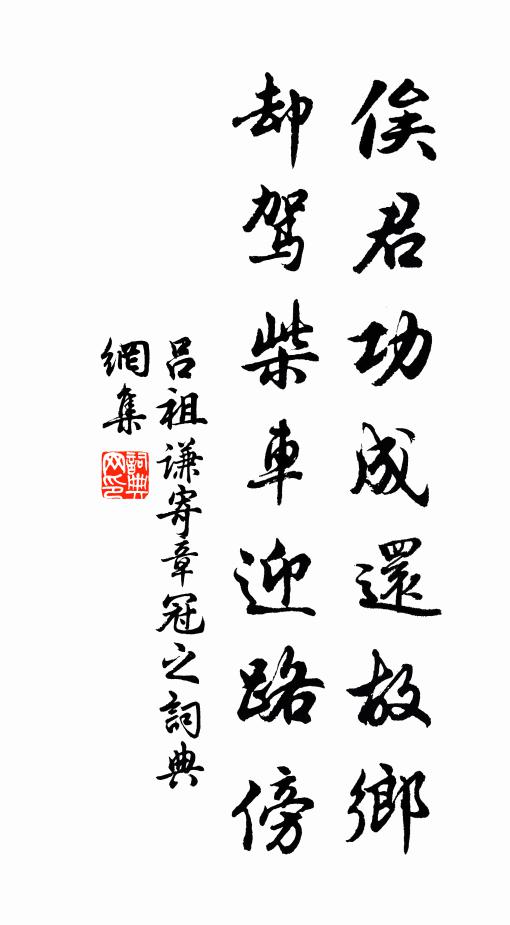 俟君功成還故鄉
却駕柴車迎路傍
吕祖謙寄章冠之詞典
網集
詞典網印